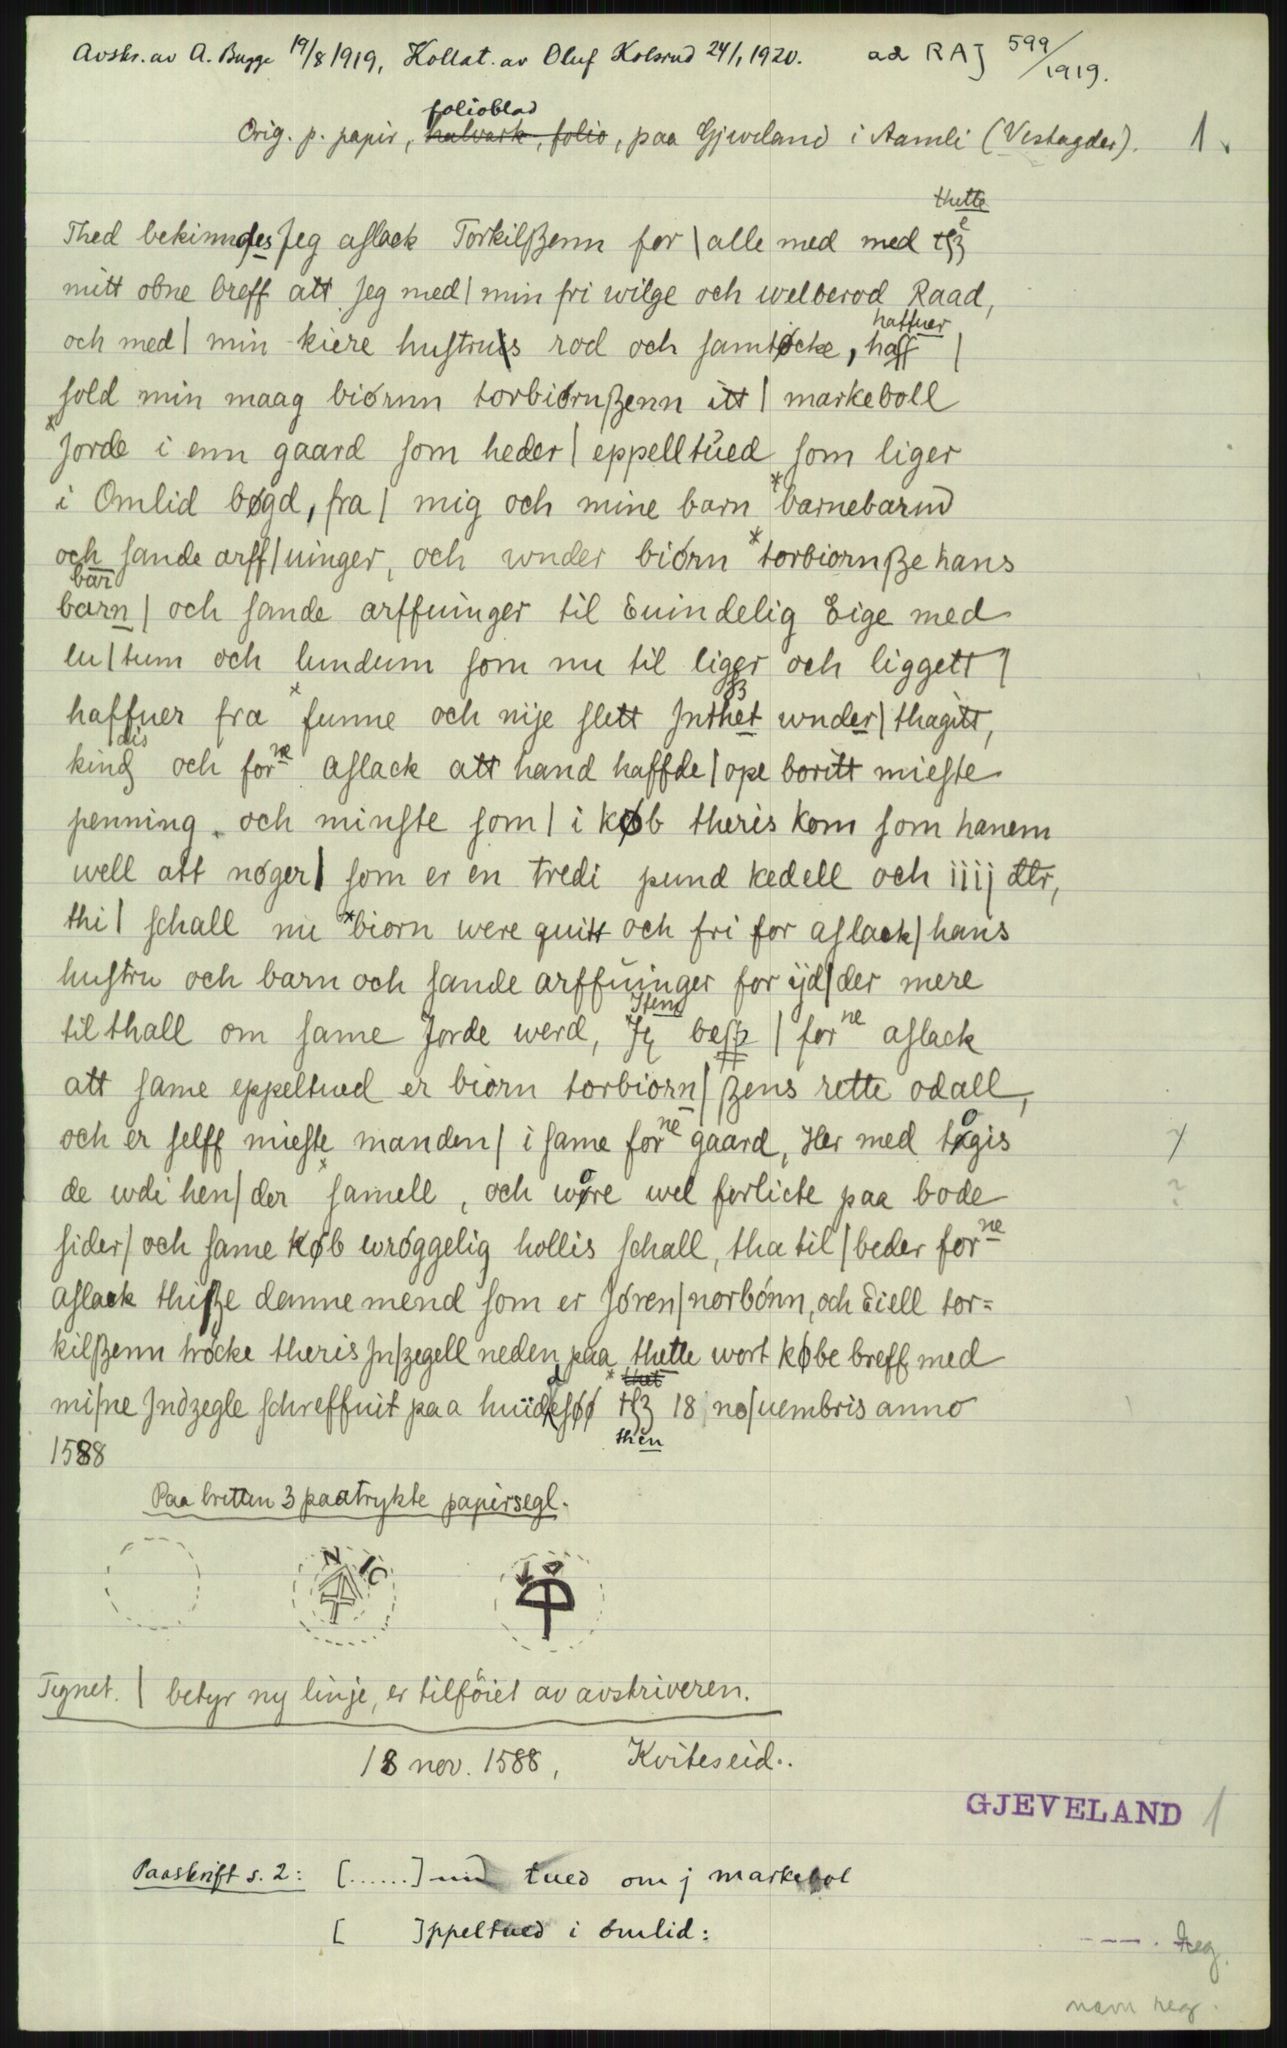 Avskr. av A. Bugge 19/8 1919, Kollat. av Oluf Kolsrud 24/1 1920. ad RAJ 599/1919.
folioblad
Orig. p. papir, halvark, folio, paa Gjeveland i Aamli (Vestagder). 1.
thette
Thed bekinndes Jeg aslack Torkilßenn for | alle med med
mitt obne breff att Jeg med | min fri wilge och welberod Raad,
haffuer
och med | min kiere hustruis rod och samtøcke, haff |
sold min maag biórnn torbiórnßenn itt | markeboll
*Jorde i enn gaard som heder | eppelltúed som liger
i Omlid bøgd, fra | mig och mine barn *barnebarnd
och sande arff|uinger, och wnder biórn *torbiornße hans
bar
barn | och sande arffuinger til Euindelig Eige med
lu|tum och lundum som nu til liger och liggett |
haffuer fra *funne och nije slett Jnthet wnder | thagitt,
dis
kind och forne aslack att hand haffde | ope boritt mieste
penning och minste som | i køb theris kom som hanem
well att nóger | som er en tredi pund kedell och iiij dlr,
thi | schall nu *biorn were quitt och fri for aslack | hans
hustru och barn och sande arffúinger for ijd|der mere
Item
til thall om same Jorde werd, bess | forne aslack
att same eppeltued er biorn torbiorn|ßens rette odall,
och er selff mieste manden | i same forne gaard, Her med togis
de wdi hen|der *samell, och wore wel forlicte paa bode
sider | och same køb wróggelig hollis schall, tha til | beder forne
aslack thiße danne mend som er Jóren | norbónn, och diell tor=
kilßenn trócke theris Jn|zegell neden paa thette wort købe breff med
*thet
mi|ne Jndzegle schreffuit paa huidesøø 18 no|uembris anno
then
1588
Paa bretten 3 paatrykte papirsegl.
N
Tegnet. | betyr ny linje, er tilföiet av avskriveren.
18 nov. 1588, Kviteseid..
GJEVELAND 1
Paaskrift s. 2: [......] tued om j markebol
[ ]ppeltued i omlid:
---. Reg.
navn reg.